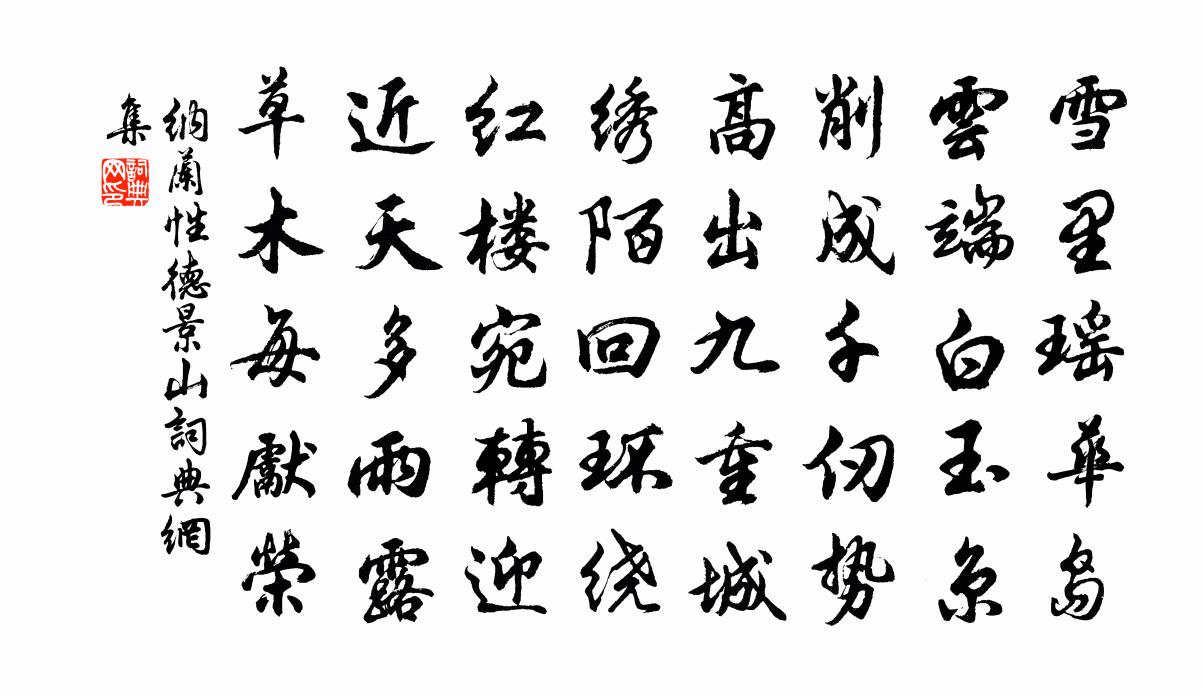 雪里瑶華岛
雲端白玉京
削成千仞势
高出九重城
绣陌回环绕
红楼宛轉迎
近天多雨露
草木每獻榮
納蘭性德景山詞典網
集
詞典
网印